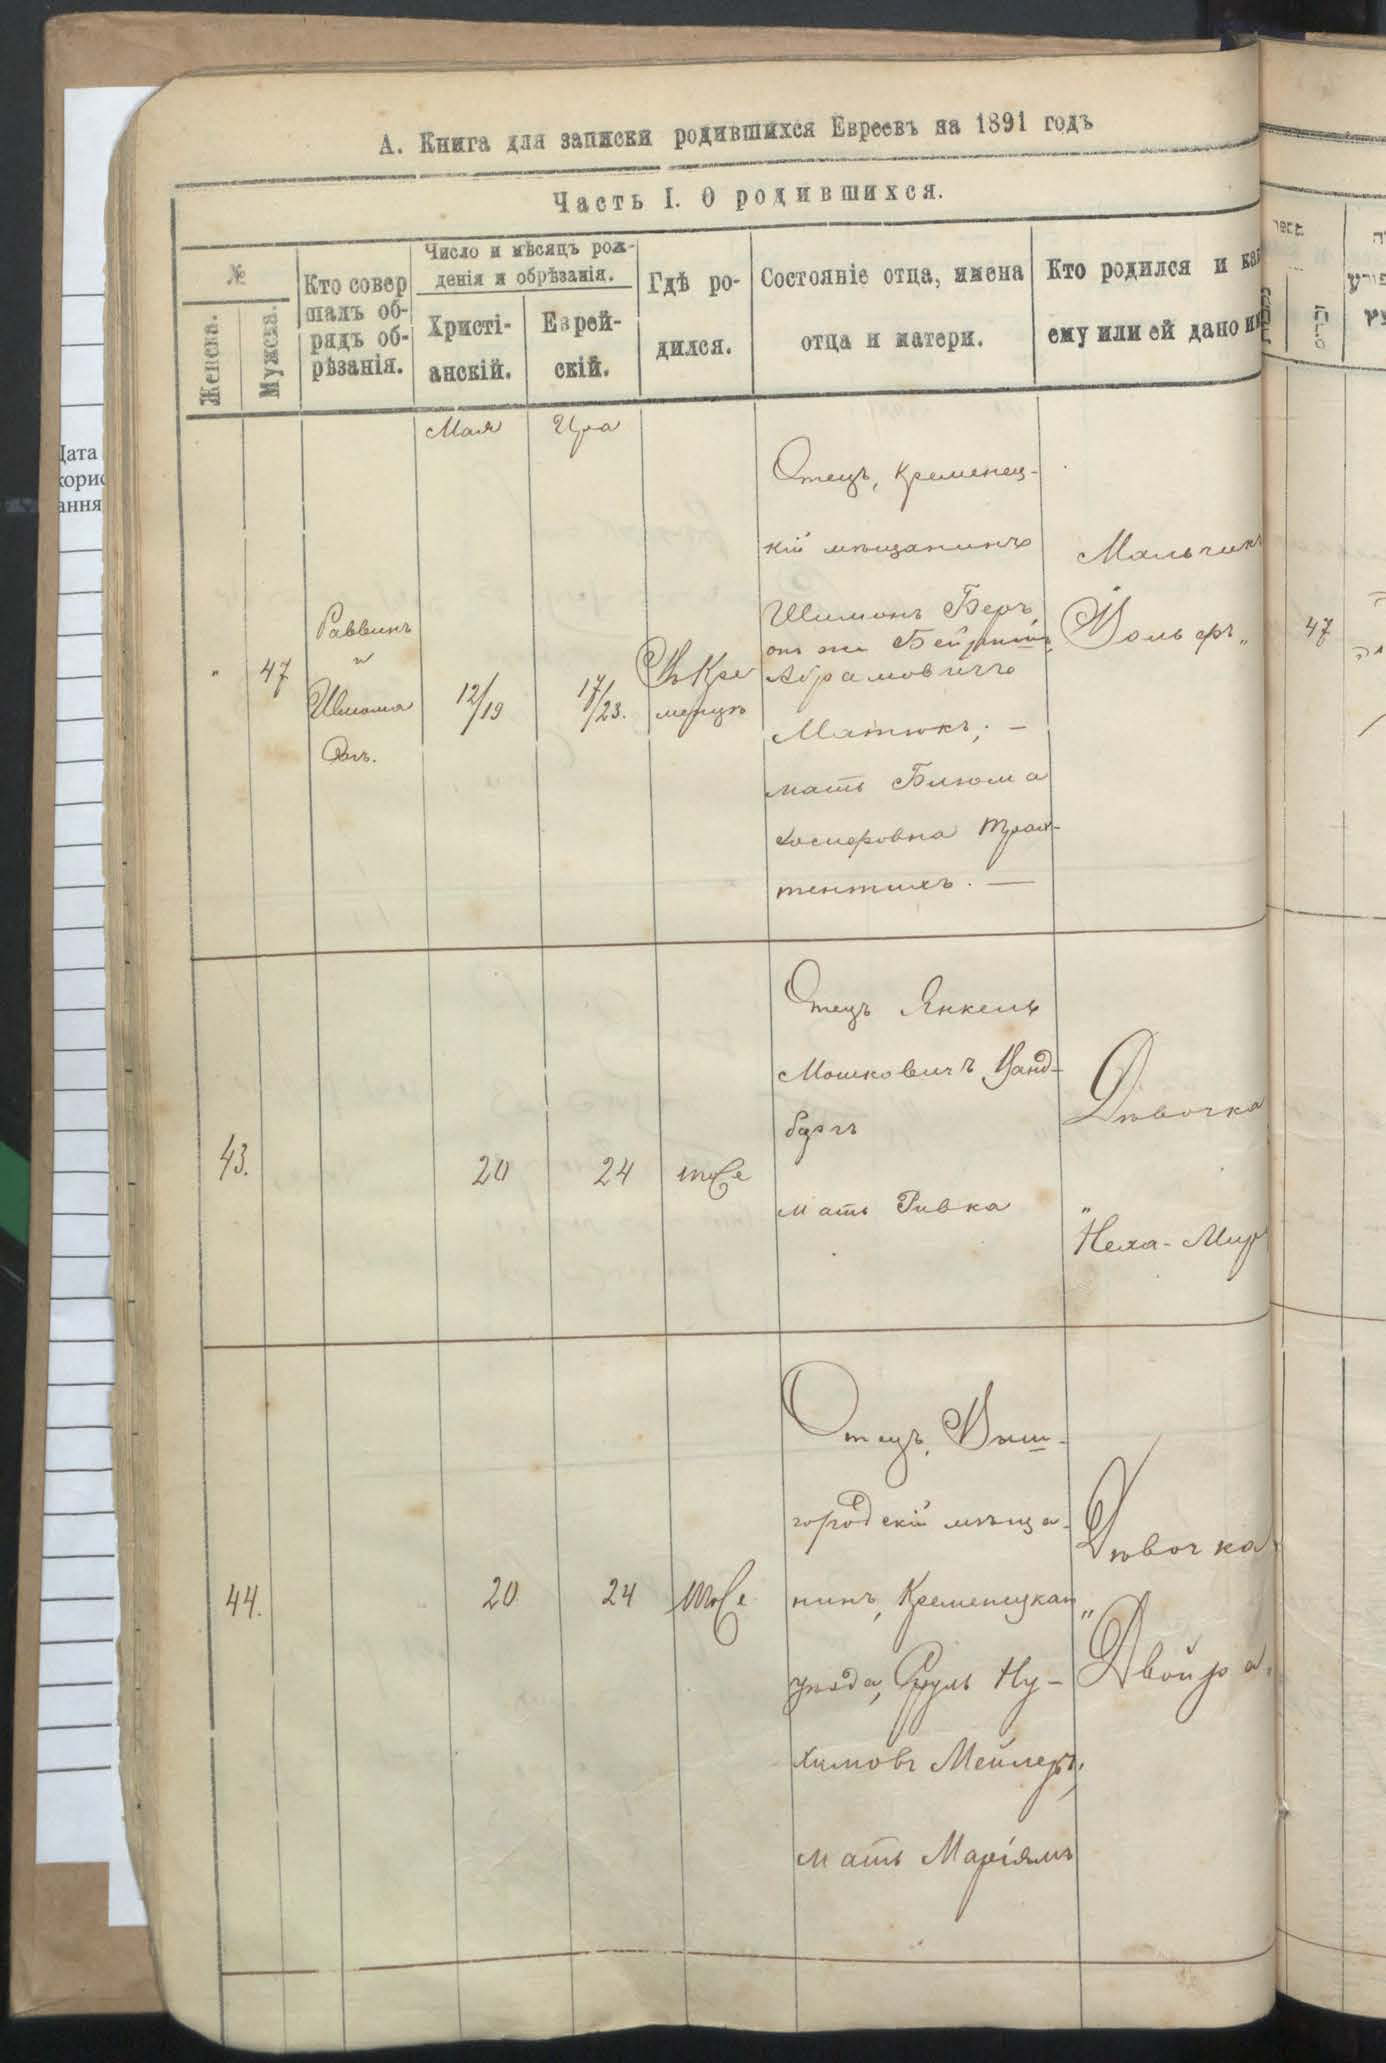 А. Книга для записки родившихся Евреевъ на 1891 годъ
Часть I. О родившихся.
№
Женска.
Мужска.
Кто совер
шалъ об-
рядъ об-
рѣзанія.
Число и мѣсяцъ рож-
денія и обрѣзанія.
Христі-
анскій.
Еврей-
скій.
Гдѣ ро-
дился.
Состояніе отца, имена
отца и матери.
Кто родился и
ему или ей дано
Мая
Іра
47
Раввинъ
и
Шлома
12/19
17/23.
Въ Кре
менцѣ
Отецъ, Кременец-
кій мѣщанинъ
Шимонъ Беръ,
онъ же Бейришъ
Абрамовичъ
Матюкъ; —
мать Блюма
Іосифовна
— 
Мальчикъ
Вольфъ"
43.
20
24
тоже
Отецъ Янкель
Мошковичъ Ванд-
бергъ
мать Ривка
Дѣвочка
"Неха-
44.
20
24
тоже
Отецъ, Выш-
городскій мѣща-
нинъ, Кременецкаго
уѣзда, Сруль Ну-
химовъ Мейлеръ,
мать Маріямъ
Дѣвочка
"Двойра"
47
Дата
корис
ання